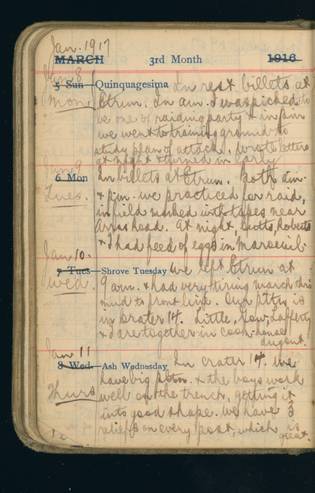 Jan. 1917
MARCH 3rd Month 1916
Jan 8
5 Sun—Quinquagesima In rest billets at
Mon. Etrun. In am. I was picked to
be one of raiding party & in p.m.
we went to training ground to
study plan of attack. Wrote letters
at night & turned in early
Jan 9
6 Mon In billets at Etrun. Both am.
Tues. & p.m. we practiced for raid,
in field marked with tapes near
Arras road. At night, Roberts
& I had feed of eggs in Maroeuil
Jan 10.
7 Tues—Shrove Tuesday We left Etrun at
Wed. 9 a.m. & had very tiring march thro
mud to front line. Our pltn is
in crater 14. Little, Low, Lafferty
& I are together in
dugout.
Jan 11
8 Wed—Ash Wednesday In crater 14. We
Thurs have big pltn. & the boys work
well on the trench, getting it
into good shape. We have 3
reliefs on every post, which is
great.